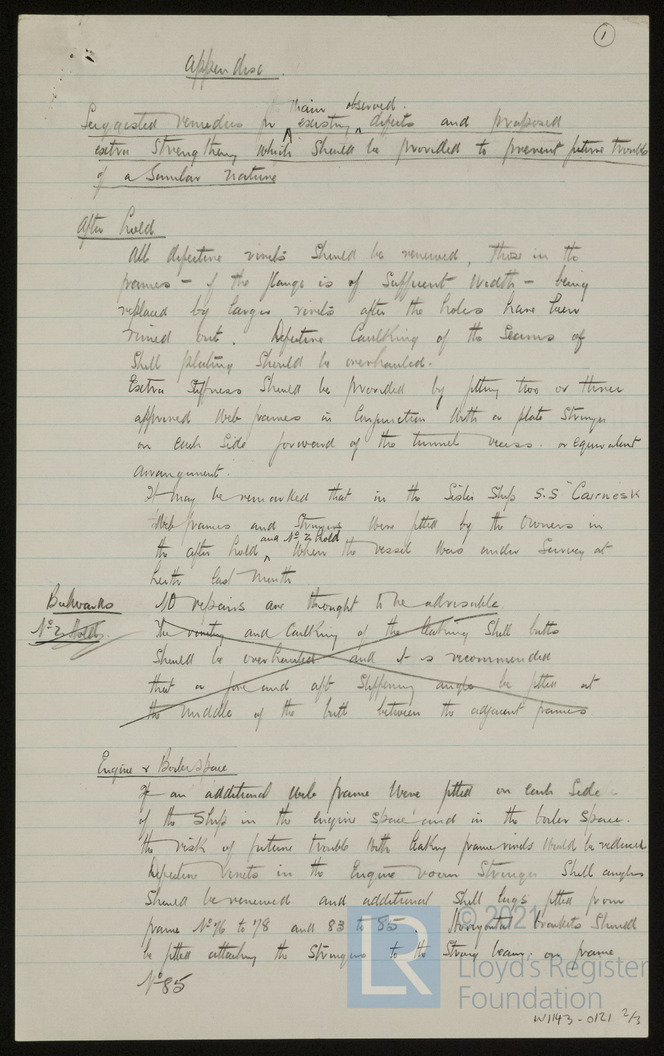 1
Appendix.
main observed.
Suggested remedies for existing defects and proposed
extra Strengthening which should be provided to prevent future trouble
of a Similar nature
After hold
All defective rivets should be renewed, those in the
frames - if the flange is of sufficient width - being
replaced by larger rivets after the holes have been
rimed out. Defective Caulking of the Seams of
Shell plating should be overhauled.
Extra Stiffness should be provided by fitting two or three
approved Web frames in Conjunction with a plate Stringer
on each side forward of the tunnel recess. or equivalent
arrangement.
It may be remarked that in the Sister Ship S.S "Cairnesk
Web frames and Stringers were fitted by the Owners in
the after hold and No 2 hold when the vessel was under Survey at
Leith last month
Bulwarks NO repairs are thought to be advisable.
No 2 Hold. The riveting and Caulking of the leaking Shell butts
should be overhauled and it is recommended
that a fore and aft Stiffening angle be fitted at
the middle of the butt between the adjacent frames
Engine & Boiler space
If an additional Web frame were fitted on each side
of the Ship in the engine space and in the boiler space.
the risk of future trouble with leaking frame rivets would be reduced
Defective rivets in the Engine room Stringer Shell angles
should be renewed and additional Shell lugs fitted from
frame No 76 to 78 and 83 to 85. Horizontal brackets should
be fitted attaching the Stringers to the Strong beam; on frame
No 85
© 2021
LR
Lloyd's Register
Foundation
W1143-0121 2/3